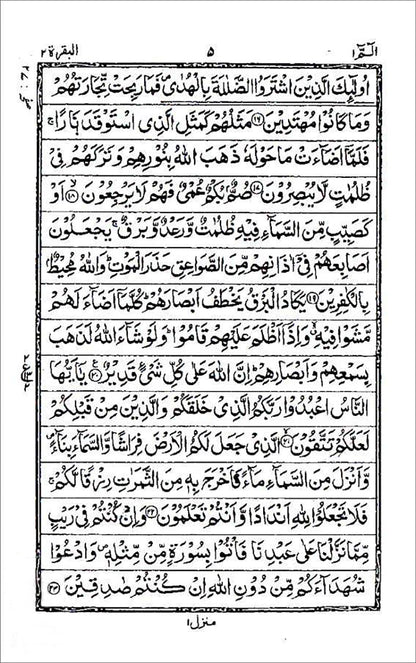 الٓمّٓ ١ ٥ البقرة ٢
اُولٰٓئِكَ الَّذِيْنَ اشْتَرَوُا الضَّلٰلَةَ بِالْهُدٰى فَمَا رَبِحَتْ تِّجَارَتُهُمْ
وَمَا كَانُوْا مُهْتَدِيْنَ ﴿١٦﴾ مَثَلُهُمْ كَمَثَلِ الَّذِى اسْتَوْقَدَ نَارًا ۚ
فَلَمَّآ اَضَآءَتْ مَا حَوْلَهٗ ذَهَبَ اللّٰهُ بِنُوْرِهِمْ وَتَرَكَهُمْ فِىْ
ظُلُمٰتٍ لَّا يُبْصِرُوْنَ ﴿١٧﴾ صُمٌّۢ بُكْمٌ عُمْىٌ فَهُمْ لَا يَرْجِعُوْنَ ﴿١٨﴾ اَوْ
كَصَيِّبٍ مِّنَ السَّمَآءِ فِيْهِ ظُلُمٰتٌ وَّرَعْدٌ وَّبَرْقٌ ۚ يَجْعَلُوْنَ
اَصَابِعَهُمْ فِىْٓ اٰذَانِهِمْ مِّنَ الصَّوَاعِقِ حَذَرَ الْمَوْتِ ؕ وَاللّٰهُ مُحِيْطٌۢ
بِالْكٰفِرِيْنَ ﴿١٩﴾ يَكَادُ الْبَرْقُ يَخْطَفُ اَبْصَارَهُمْ ؕ كُلَّمَآ اَضَآءَ لَهُمْ
مَّشَوْا فِيْهِ ۙ وَاِذَآ اَظْلَمَ عَلَيْهِمْ قَامُوْا ؕ وَلَوْ شَآءَ اللّٰهُ لَذَهَبَ
بِسَمْعِهِمْ وَاَبْصَارِهِمْ ؕ اِنَّ اللّٰهَ عَلٰى كُلِّ شَىْءٍ قَدِيْرٌ ﴿٢٠﴾ يٰٓاَيُّهَا
النَّاسُ اعْبُدُوْا رَبَّكُمُ الَّذِىْ خَلَقَكُمْ وَالَّذِيْنَ مِنْ قَبْلِكُمْ
لَعَلَّكُمْ تَتَّقُوْنَ ﴿٢١﴾ الَّذِىْ جَعَلَ لَكُمُ الْاَرْضَ فِرَاشًا وَّالسَّمَآءَ بِنَآءً ۪
وَّاَنْزَلَ مِنَ السَّمَآءِ مَآءً فَاَخْرَجَ بِهٖ مِنَ الثَّمَرٰتِ رِزْقًا لَّكُمْ ۚ
فَلَا تَجْعَلُوْا لِلّٰهِ اَنْدَادًا وَّاَنْتُمْ تَعْلَمُوْنَ ﴿٢٢﴾ وَاِنْ كُنْتُمْ فِىْ رَيْبٍ
مِّمَّا نَزَّلْنَا عَلٰى عَبْدِنَا فَاْتُوْا بِسُوْرَةٍ مِّنْ مِّثْلِهٖ ۪ وَادْعُوْا
شُهَدَآءَكُمْ مِّنْ دُوْنِ اللّٰهِ اِنْ كُنْتُمْ صٰدِقِيْنَ ﴿٢٣﴾
منزل ١